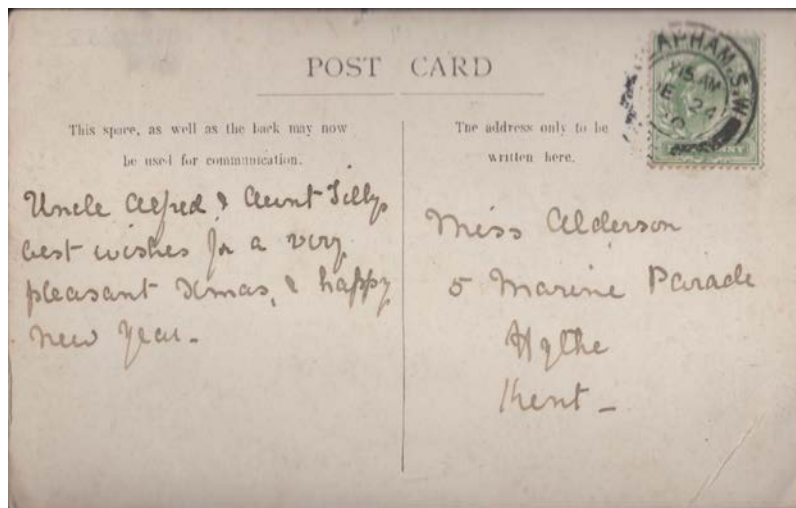 POST CARD
This space, as well as the back may now
be used for communication.
The address only to be
written here.
Uncle Alfred & Aunt Tillys
best wishes for a very
pleasant Xmas, & happy
New Year -
Miss Alderson
5 Marine Parade
Hythe
Kent -
APHAM. S.W.
15 AM
DE 24